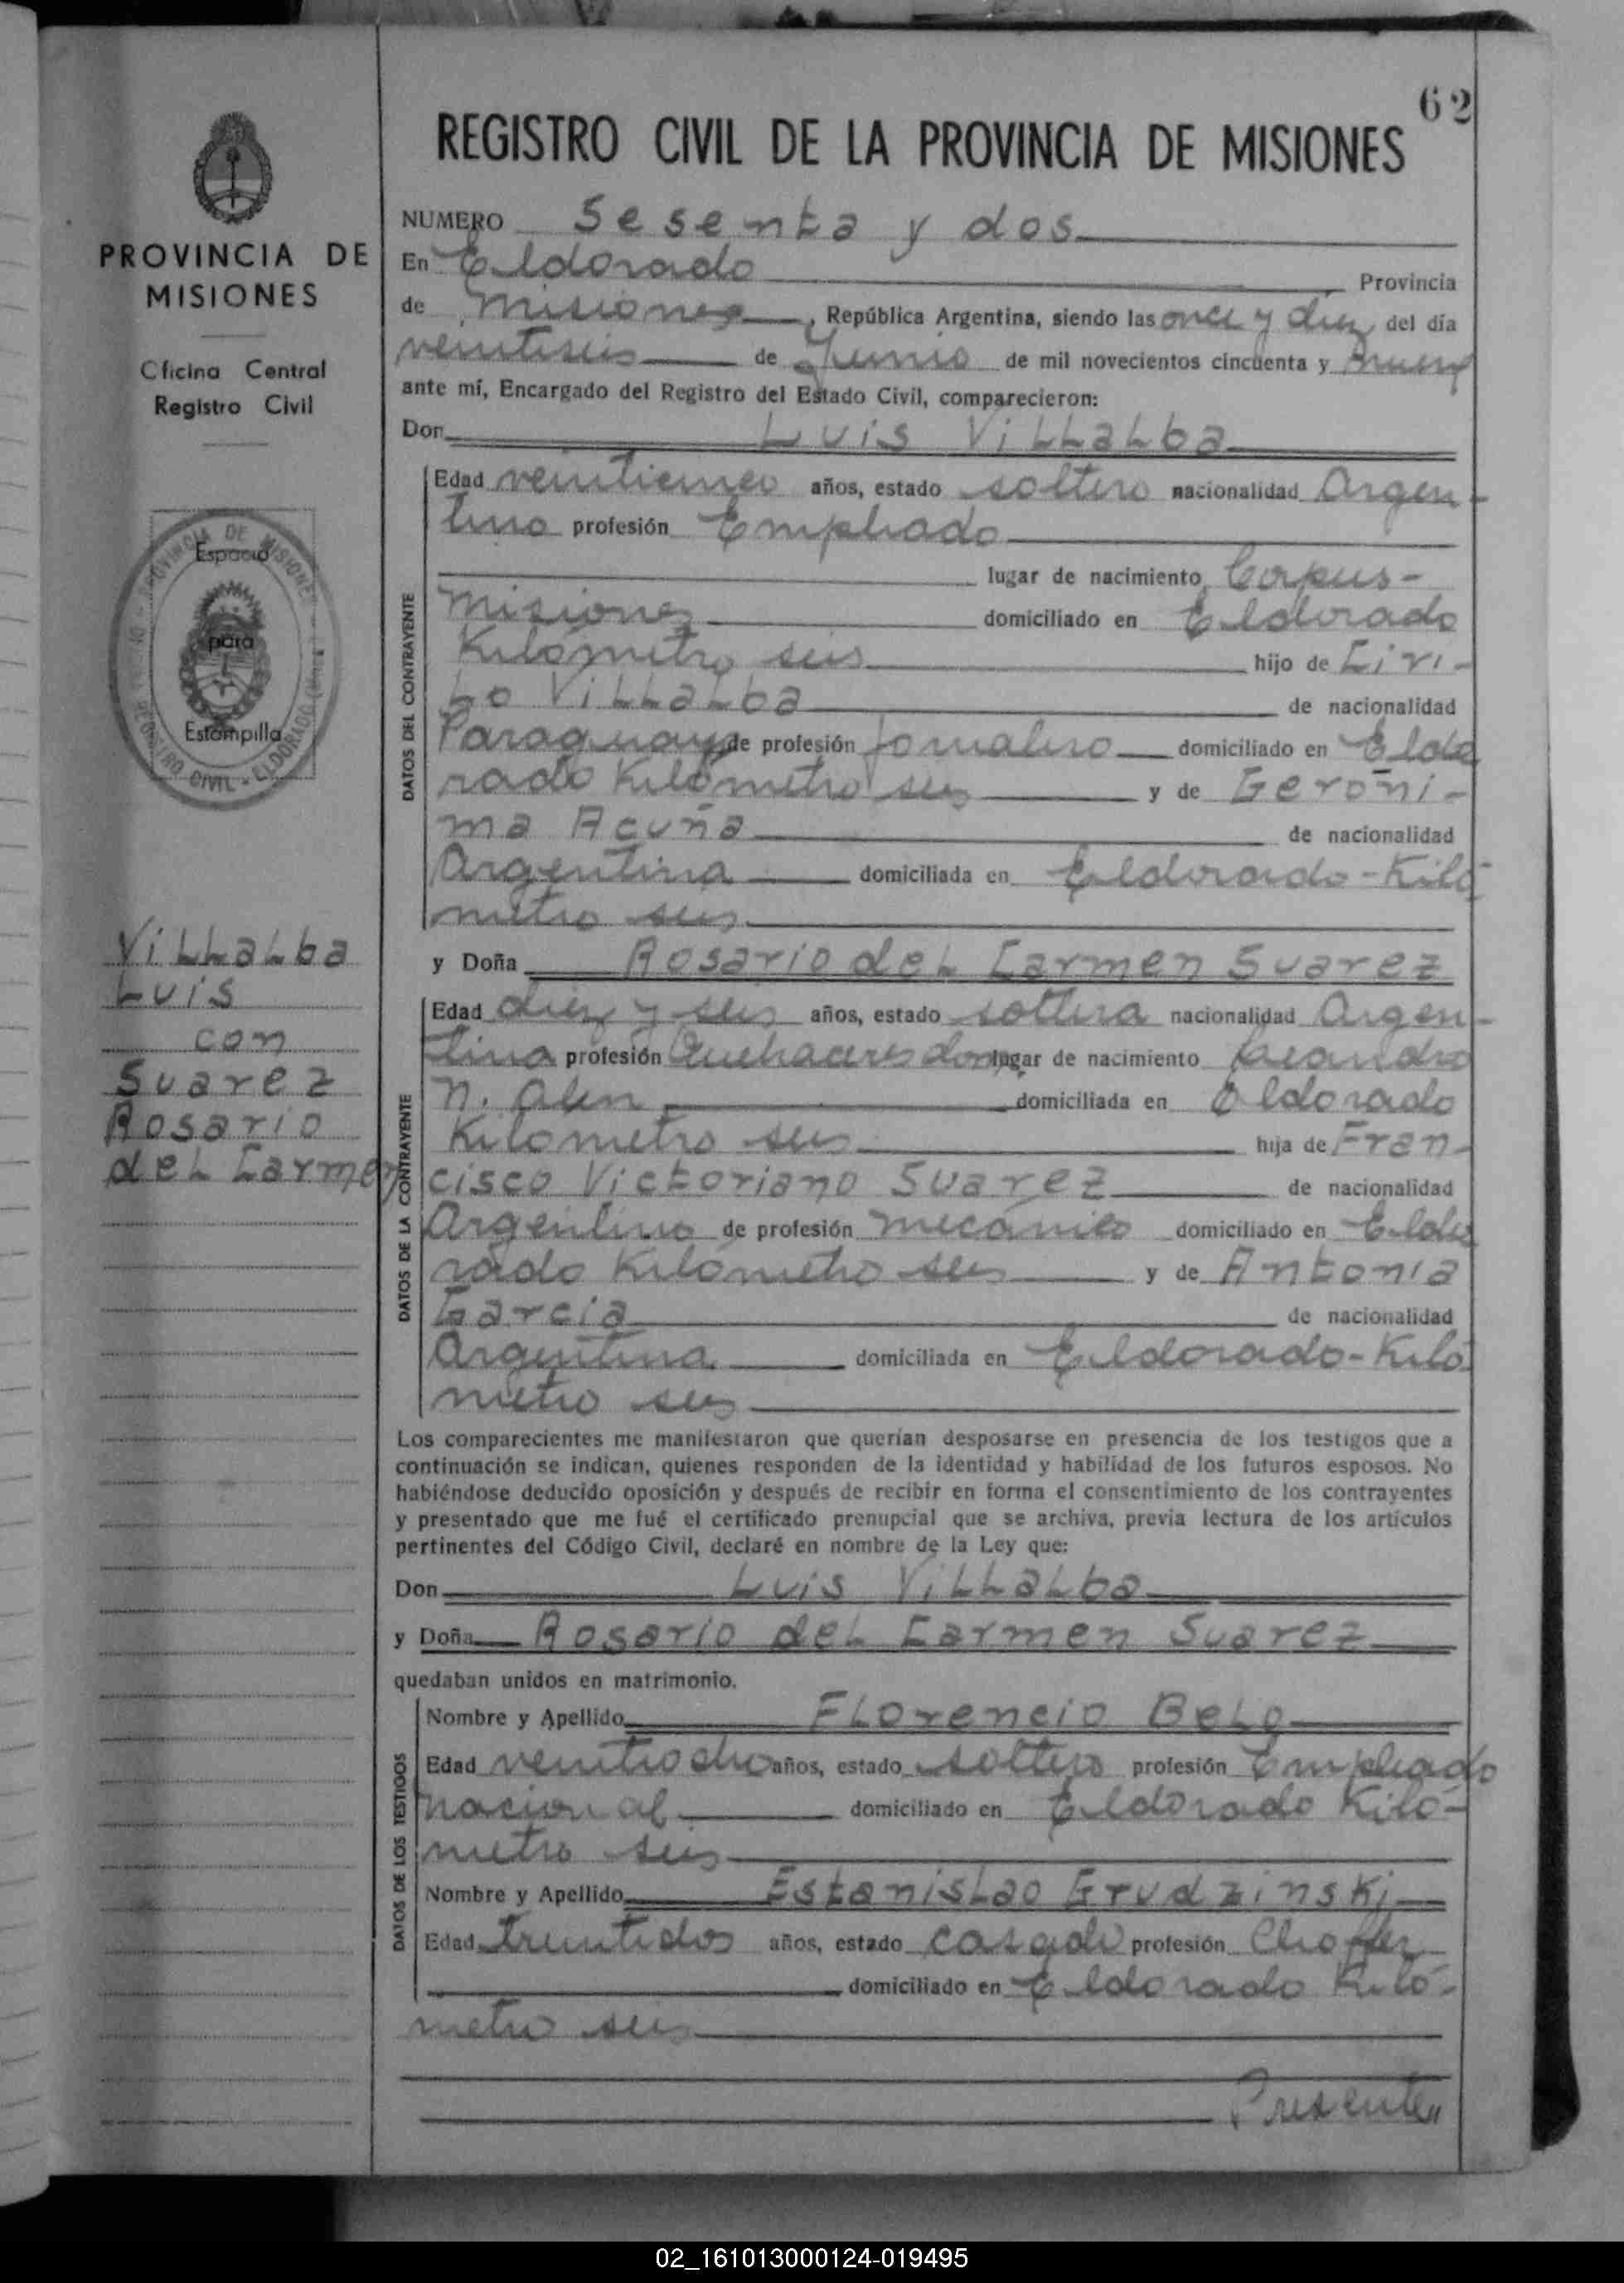 62
REGISTRO CIVIL DE LA PROVINCIA DE MISIONES
PROVINCIA DE
MISIONES
Oficina Central
Registro Civil
PROVINCIA DE MISIONES
REGISTRO CIVIL - ELDORADO
Espacio
para
Estampilla
Villalba
Luis
con
Suarez
Rosario
del Carmen
NUMERO Sesenta y dos
En Eldorado Provincia
de Misiones, República Argentina, siendo las once y diez del día
veintiseis de Junio de mil novecientos cincuenta y nueve
ante mí, Encargado del Registro del Estado Civil, comparecieron:
Don Luis Villalba
DATOS DEL CONTRAYENTE
Edad veinticinco años, estado soltero nacionalidad Argen-
tino profesión Empleado
lugar de nacimiento Corpus-
Misiones domiciliado en Eldorado
Kilómetro seis hijo de Ciri-
lo Villalba de nacionalidad
Paraguayo de profesión Jornalero domiciliado en Eldo
rado Kilómetro seis y de Geróni-
ma Acuña de nacionalidad
Argentina domiciliada en Eldorado-Kiló
metro seis
y Doña Rosario del Carmen Suarez
DATOS DE LA CONTRAYENTE
Edad diez y seis años, estado soltera nacionalidad Argen-
tina profesión Quehaceres dom. lugar de nacimiento Leandro
N. Alen domiciliada en Eldorado
Kilómetro seis hija de Fran-
cisco Victoriano Suarez de nacionalidad
Argentino de profesión mecánico domiciliado en Eldo
rado Kilómetro seis y de Antonia
Garcia de nacionalidad
Argentina domiciliada en Eldorado-Kiló
metro seis
Los comparecientes me manifestaron que querían desposarse en presencia de los testigos que a
continuación se indican, quienes responden de la identidad y habilidad de los futuros esposos. No
habiéndose deducido oposición y después de recibir en forma el consentimiento de los contrayentes
y presentado que me fué el certificado prenupcial que se archiva, previa lectura de los artículos
pertinentes del Código Civil, declaré en nombre de la Ley que:
Don Luis Villalba
y Doña Rosario del Carmen Suarez
quedaban unidos en matrimonio.
DATOS DE LOS TESTIGOS
Nombre y Apellido Florencio Belo
Edad veintiocho años, estado soltero profesión Empleado
nacional domiciliado en Eldorado Kiló-
metro seis
Nombre y Apellido Estanislao Grudzinski
Edad treintidos años, estado casado profesión Choffer
domiciliado en Eldorado Kiló-
metro seis
Presente
02_161013000124-019495